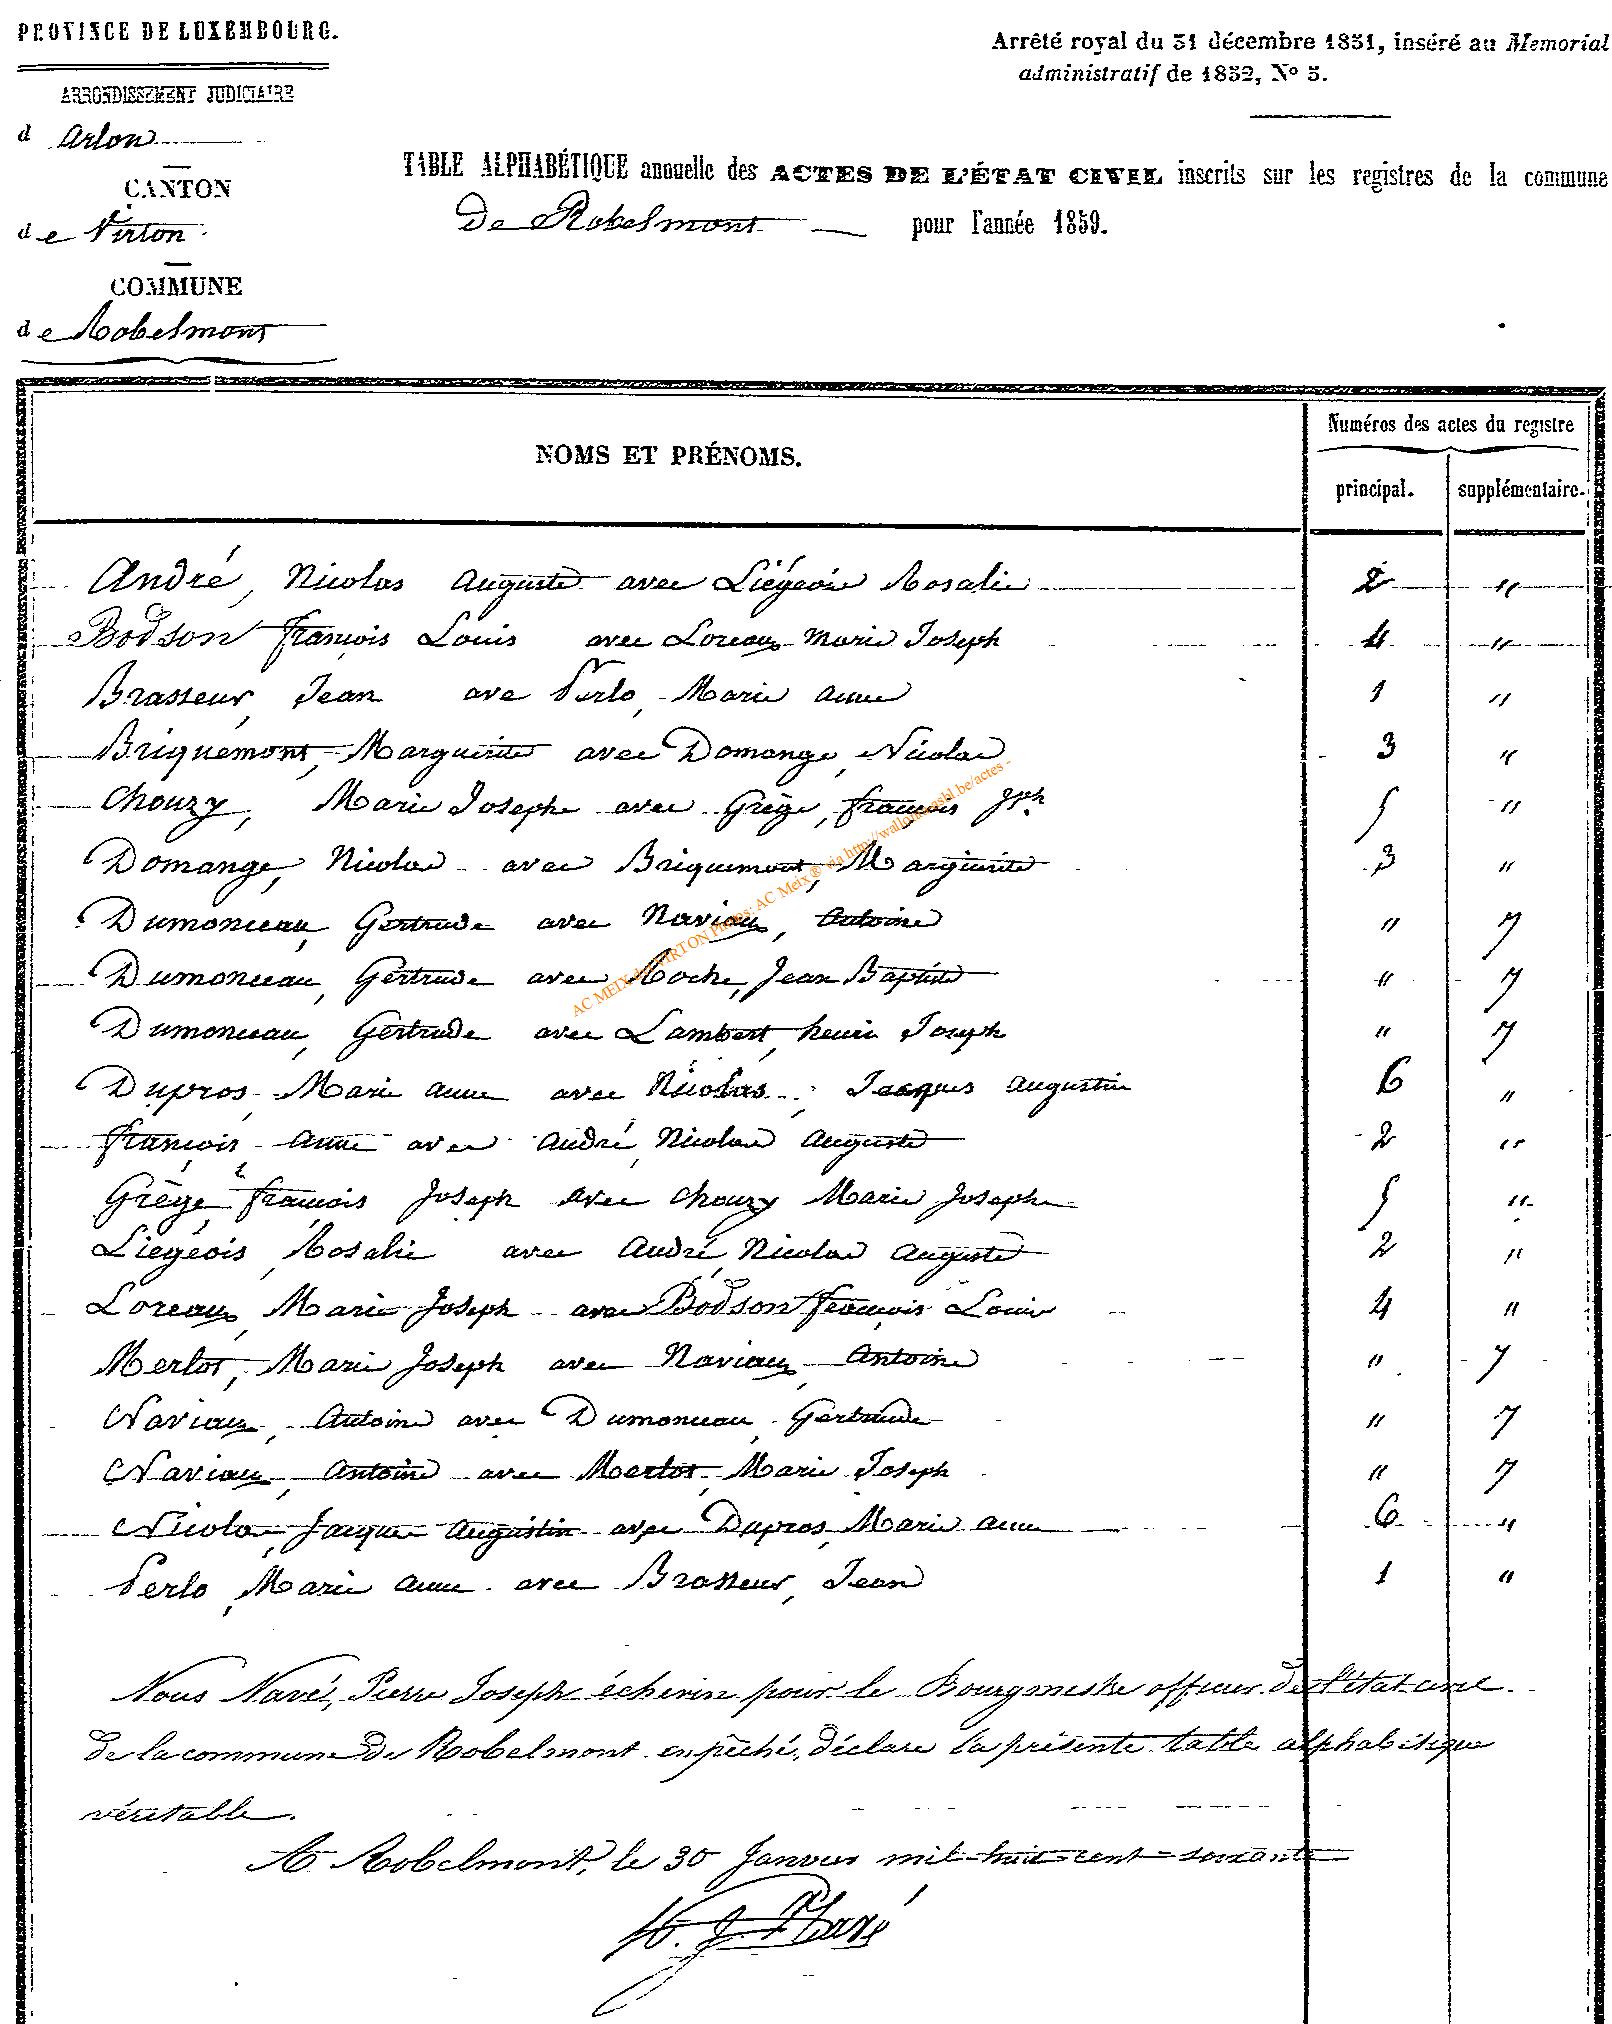 PROVINCE DE LUXEMBOURG.
ARRONDISSEMENT JUDICIAIRE
d Arlon
CANTON
de Virton
COMMUNE
de Robelmont
Arrêté royal du 31 décembre 1831, inséré au Memorial
administratif de 1832, Nº 3.
TABLE ALPHABÉTIQUE annuelle des ACTES DE L'ÉTAT CIVIL inscrits sur les registres de la commune
De Robelmont pour l'année 1859.
NOMS ET PRÉNOMS.
Numéros des actes du registre
principal. supplémentaire.
André, Nicolas Auguste avec Liégeois Rosalie 2 "
Bodson François Louis avec Loreaux Marie Joseph 4 "
Brasseur, Jean ave Perlo, Marie Anne 1 "
Briquémont, Marguerite avec Domange, Nicolas 3 "
Chouzy, Marie Josephe avec Grège, François Jph 5 "
Domange, Nicolas avec Briquemont, Marguerite 3 "
Dumonceau, Gertrude avec Naviaux, Antoine " 7
Dumonceau, Gertrude avec Roche, Jean Baptiste " 7
Dumonceau, Gertrude avec Lambert, henri Joseph " 7
Dupros Marie Anne avec Nicolas, Jacques Augustin 6 "
François Anne avec André, Nicolas Auguste 2 "
Grège, François Joseph avec Chouzy Marie Josephe 5 "
Liégeois, Rosalie avec André, Nicolas Auguste 2 "
Loreaux, Marie Joseph avec Bodson François Louis 4 "
Merlot, Marie Joseph avec Naviaux Antoine " 7
Naviaux, Antoine avec Dumonceau, Gertrude " 7
Naviaux, Antoine avec Merlot, Marie Joseph " 7
Nicolas, Jacques Augustin avec Dupros, Marie Anne 6 "
Perlo, Marie Anne avec Brasseur, Jean 1 "
Nous Navé, Pierre Joseph échevin pour le Bourgmestre officier de l'état civil
de la commune de Robelmont empêché, déclare la présente table alphabétique
véritable.
A Robelmont, le 30 Janvier mil huit cent soixante
P. J. Navé